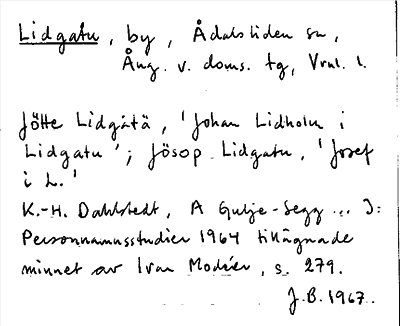 Lidgatu, by, Ådalsliden sn,
Ång. v. doms. tg, Vrnl. l.
Jötte Lidgátä, 'Johan Lidholm i
Lidgatu'; Jösop Lidgatu, 'Josef
i L.'
K.-H. Dahlstedt, A Gulje-Segg... I:
Personnamnsstudier 1964 tillägnade
minnet av Ivar Modéer, s. 279.
J.B. 1967.